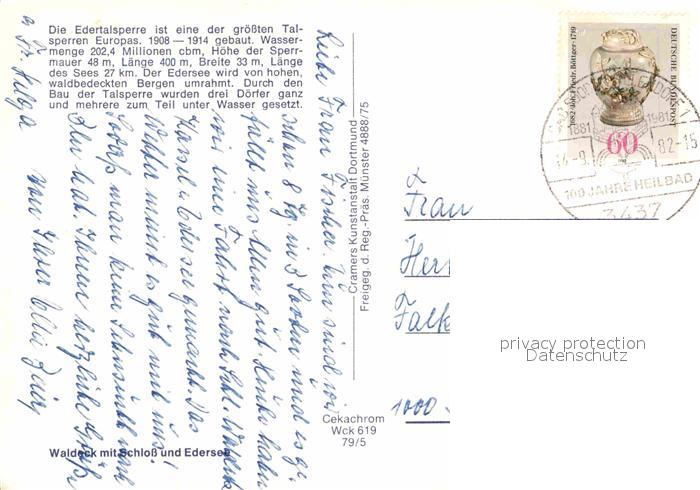 Die Edertalsperre ist eine der größten Tal-
sperren Europas. 1908—1914 gebaut. Wasser-
menge 202,4 Millionen cbm, Höhe der Sperr-
mauer 48 m, Länge 400 m, Breite 33 m, Länge
des Sees 27 km. Der Edersee wird von hohen,
waldbedeckten Bergen umrahmt. Durch den
Bau der Talsperre wurden drei Dörfer ganz
und mehrere zum Teil unter Wasser gesetzt.
Liebe Frau Fischer. Nun sind wir
schon 8 Tg. in und es ge-
fällt uns allen gut. Heute haben
wir eine Fahrt nach Schl. Waldeck
gemacht. Das
Wetter meint es gut mit uns!
man keine
hat. Ihnen herzliche Grüße
von Ihrer
u. Fr. Helga
Waldeck mit Schloß und Edersee
Cramers Kunstanstalt Dortmund
Freigeg. d. Reg.-Präs. Münster 4888/75
Cekachrom
Wck 619
79/5
1682·Joh. Friedr. Böttger·1719
DEUTSCHE BUNDESPOST
60
1881 1981
-9. 82-15
100 JAHRE HEILBAD
3437
Frau
Her
Falk
1000
privacy protection
Datenschutz